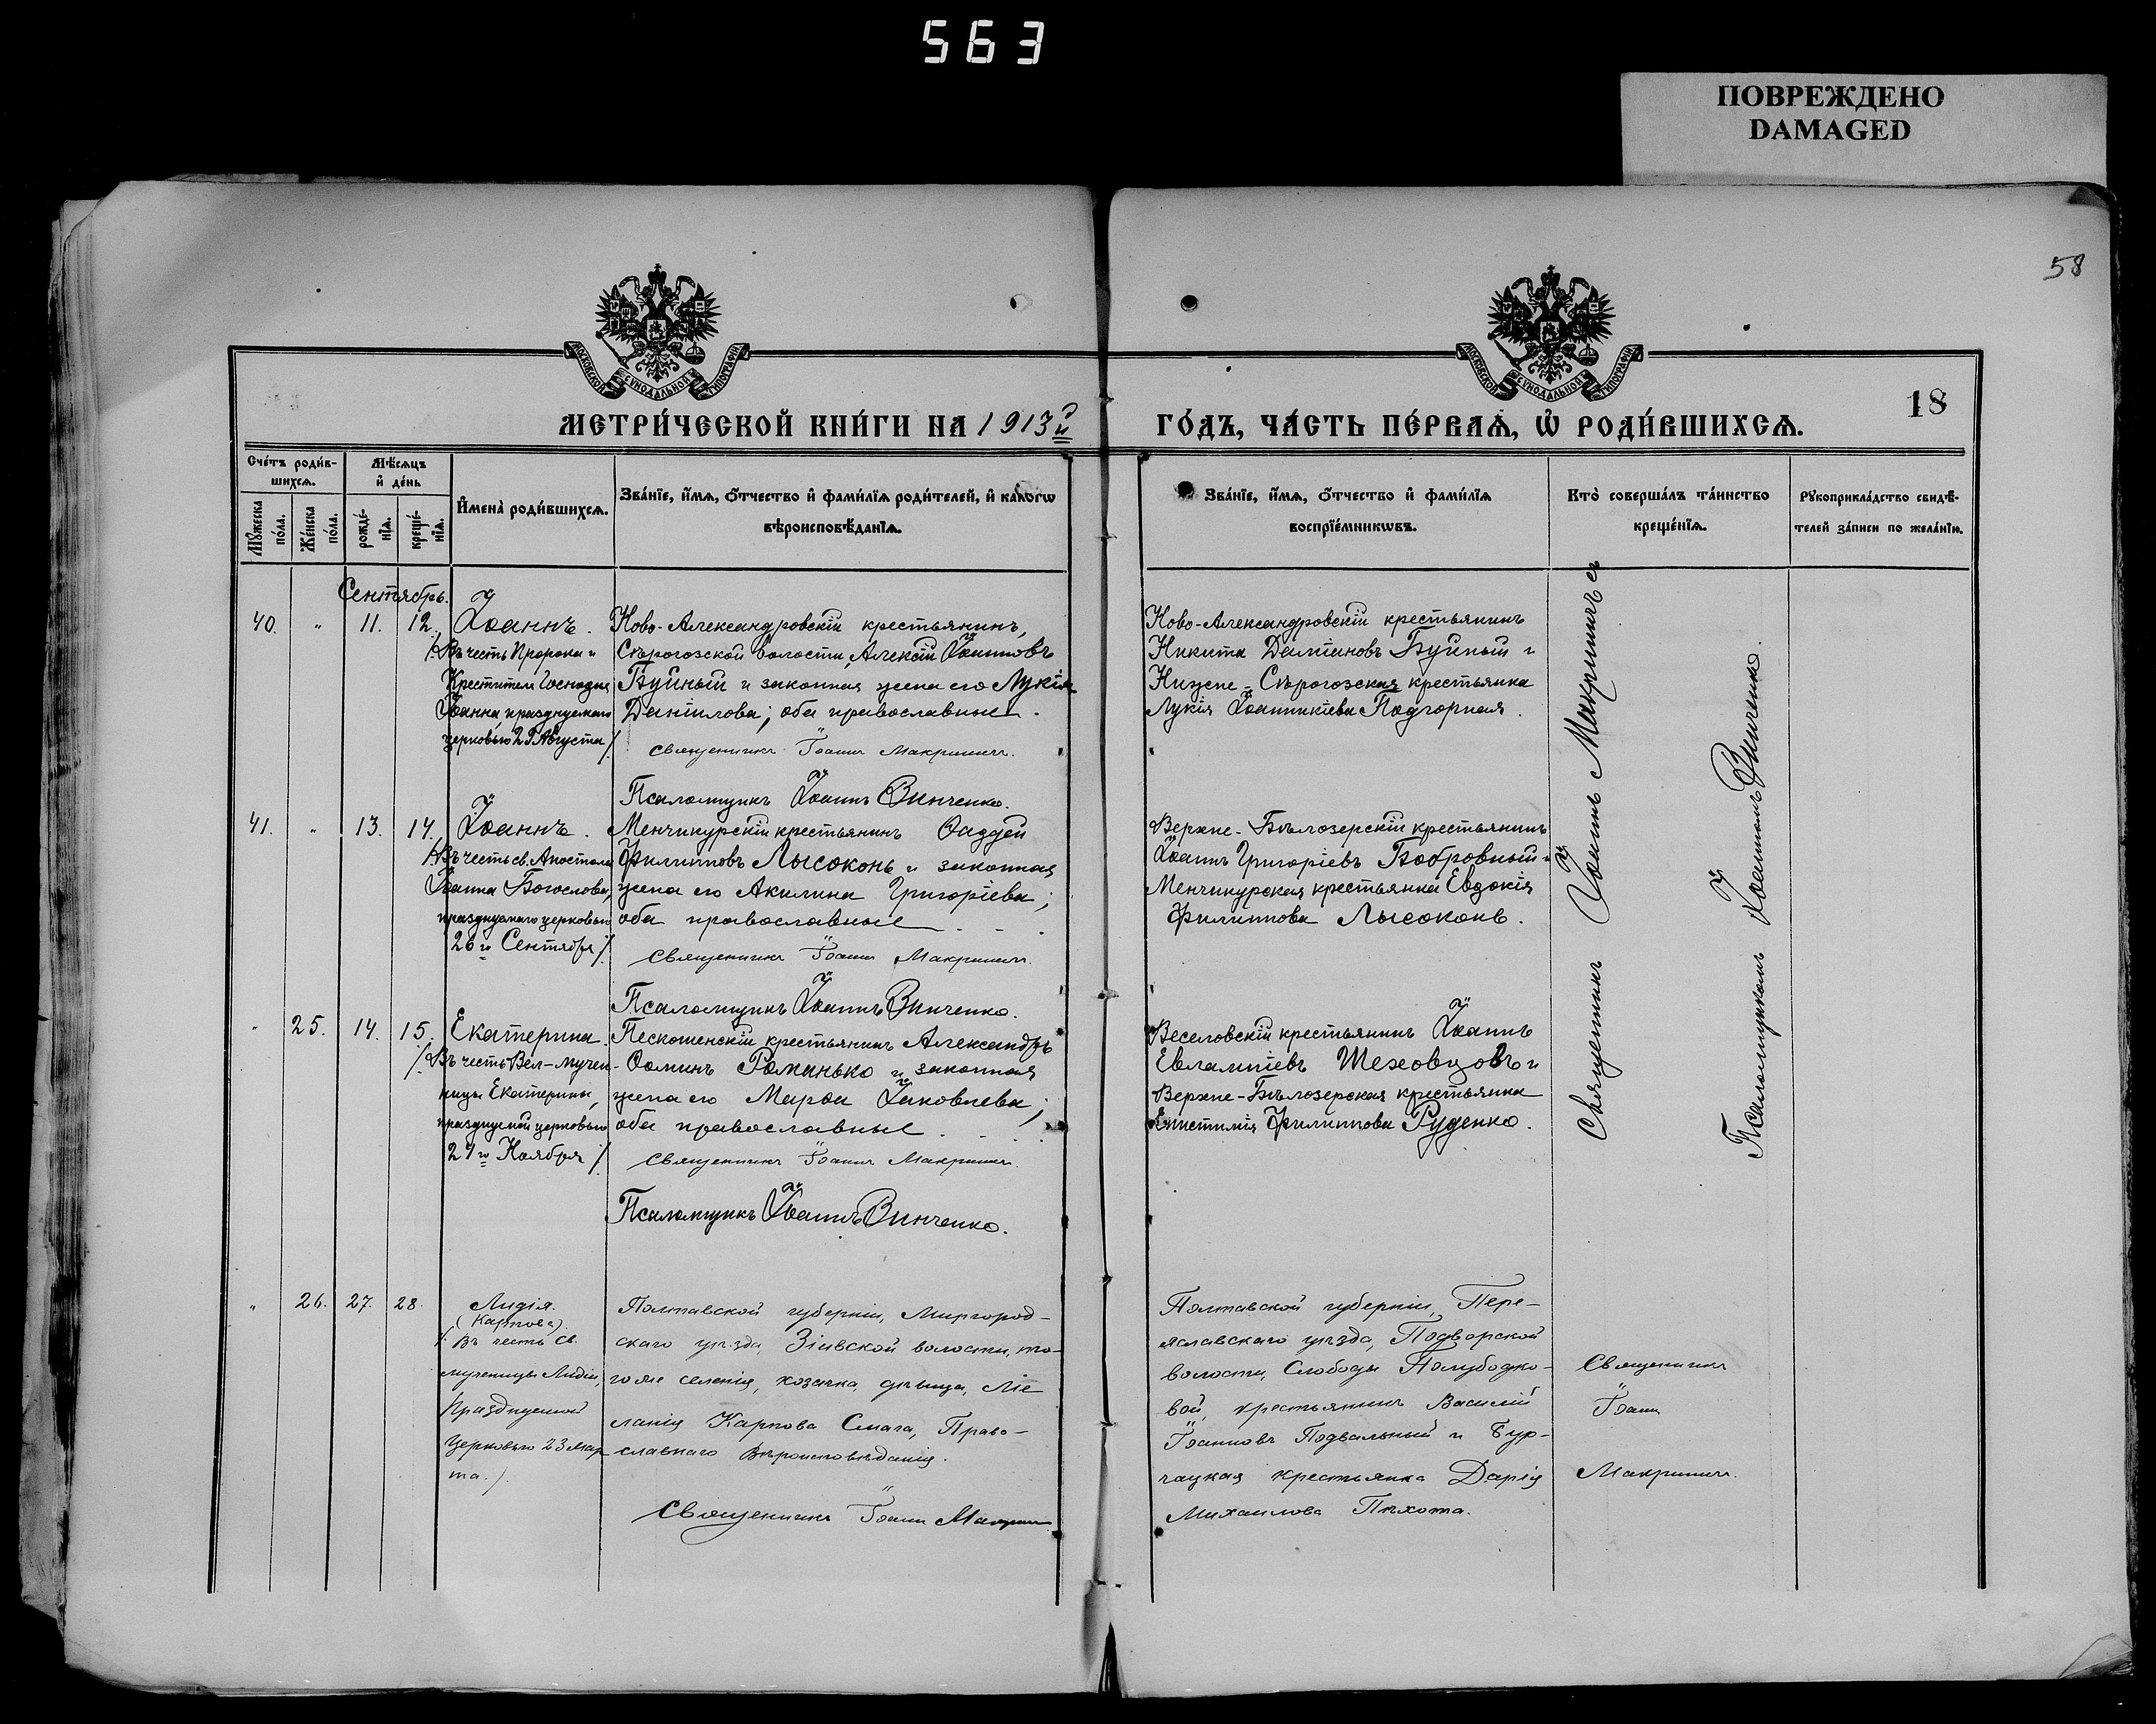 563
ПОВРЕЖДЕНО
DAMAGED
58
МОСКОВСКОЙ СѴНОДАЛЬНОЙ ТИПОГРАФІИ
МОСКОВСКОЙ СѴНОДАЛЬНОЙ ТИПОГРАФІИ
18
МЕТРИ́ЧЕСКОЙ КНИ́ГИ НА 1913й
ГО́ДЪ, ЧА́СТЬ ПЕ́РВАѦ, Ѡ҆ РОДИ́ВШИХСѦ.
Сче́тъ роди́в-
шихсѧ.
Мѣ́сѧцъ
и҆ де́нь
Мꙋ́жеска
по́ла.
Же́нска
по́ла.
рожде́-
нїѧ.
креще́-
нїѧ.
И҆мена̀ роди́вшихсѧ.
Зва́нїе, и҆́мѧ, ѻ҆́тчество и҆ фами́лїѧ роди́телей, и҆ како́гѡ
вѣроисповѣ́данїѧ.
Зва́нїе, и҆́мѧ, ѻ҆́тчество и҆ фами́лїѧ
воспрїе́мникѡвъ.
Кто̀ соверша́лъ та́инство
креще́нїѧ.
Рꙋкоприкла́дство свидѣ́-
телей за́писи по жела́нїю.
Сентябрь.
40. " 11. 12.
Іоаннъ.
/:Въ честь Пророка и
Крестителя Господня
Іоанна празднуемаго
церковью 29 Августа/.
Ново-Александровскій крестьянинъ,
Сѣрогозской волости, Алексій Іоанновъ
Буйный и законная жена его Лукія
Даніилова; оба православные.
Священникъ Іоаннъ Макришичъ.
Псаломщикъ Іоаннъ Винченко.
Ново-Александровскій крестьянинъ
Никита Даміановъ Буйный и
Нижне-Сѣрогозская крестьянка
Лукія Іоанникіева Подгорная.
41. " 13. 14.
Іоаннъ.
/:Въ честь св. Апостола
Іоанна Богослова,
празднуемаго церковью
26го Сентября/.
Менчикурскій крестьянинъ Ѳаддей
Филипповъ Лысоконь и законная
жена его Акилина Григоріева;
оба православные
Священникъ Іоаннъ Макришичъ.
Псаломщикъ Іоаннъ Винченко.
Верхне-Бѣлозерскій крестьянинъ
Іоаннъ Григоріевъ Бобровный и
Менчикурская крестьянка Евдокія
Филиппова Лысоконь.
" 25. 14. 15.
Екатерина.
/:Въ честь Вел-мучен-
ницы Екатерины,
празднуемой церковью
24го Ноября/.
Пескошенскій крестьянинъ Александръ
Ѳоминъ Романько и законная
жена его Марѳа Іаковлева;
оба православные
Священникъ Іоаннъ Макришичъ.
Псаломщикъ Іоаннъ Винченко.
Веселовскій крестьянинъ Іоаннъ
Евлампіевъ Шеховцовъ и
Верхне-Бѣлозерская крестьянка
Епистимія Филиппова Руденко.
Священникъ Іоаннъ Макришичъ съ
Псаломщикомъ Іоанномъ Винченко.
" 26. 27. 28.
Лидія.
(Карпова).
/: Въ честь св.
мученицы Лидіи,
празднуемой
Церковью 23 Мар-
та./
Полтавской губерніи, Миргород-
скаго уѣзда, волости, то-
гоже селенія, козачка, дѣвица, Ме
ланія Карпова Смага, Право-
славнаго Вѣроисповѣданія.
Священникъ Іоаннъ
Полтавской губерніи, Пере-
яславскаго уѣзда, Подворской
волости, Слободы
вой, крестьянинъ Василій
Іоанновъ Подвальный и Бур-
чацкая крестьянка Дарія
Михаилова Пѣхота.
Священникъ
Іоаннъ
Макришичъ.